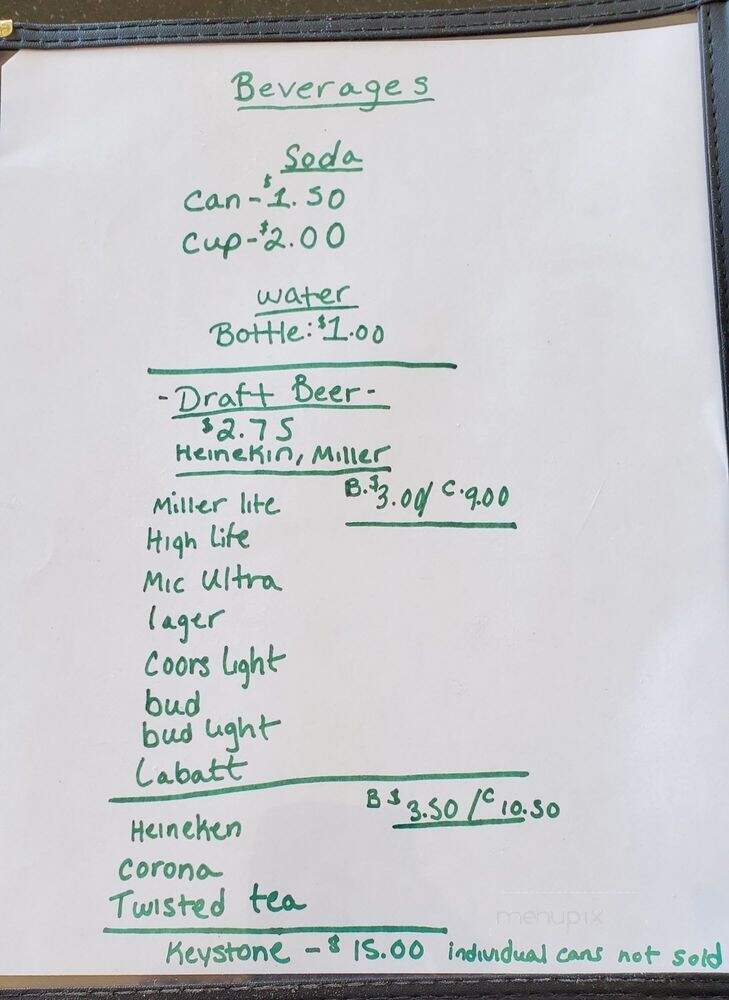 Beverages
Soda
Can - $1.50
Cup - $2.00
water
Bottle: $1.00
- Draft Beer -
$2.75
Heinekin, Miller
Miller lite B. $3.00/ C. 9.00
High Life
Mic Ultra
lager
Coors Light
bud
bud light
Labatt
Heineken B $3.50 / C 10.50
Corona
Twisted tea
menupix
Keystone - $15.00 individual cans not sold